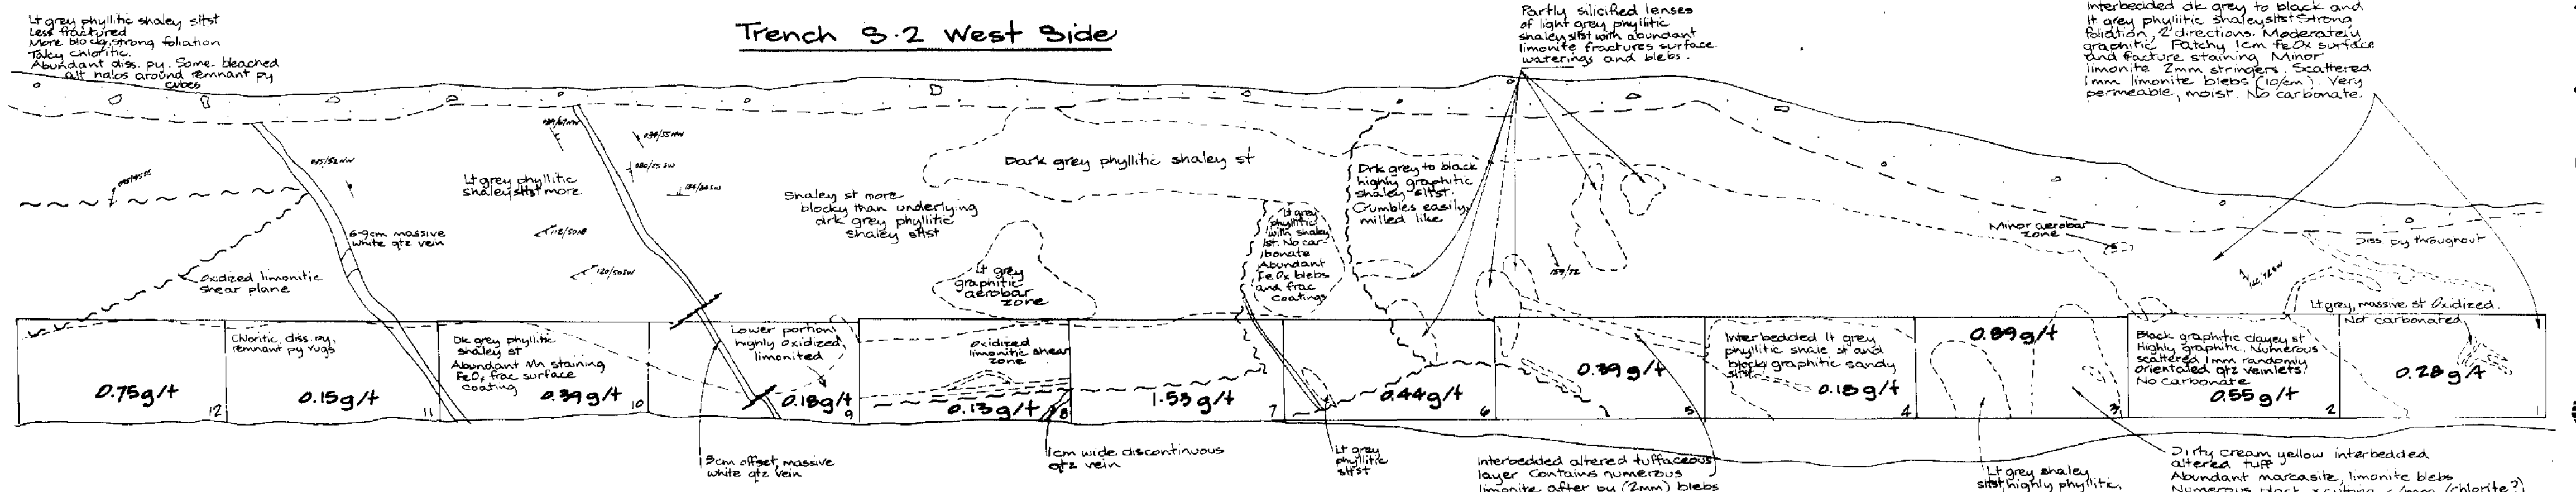 Trench S.2 West Side
Lt grey phyllitic shaley sltst
Less fractured
More blocky, strong foliation
Talcy chloritic.
Abundant diss. py. Some bleached
alt halos around remnant py
cubes
Partly silicified lenses
of light grey phyllitic
shaley sltst with abundant
limonite fractures surface.
waterings and blebs.
Interbedded dk grey to black and
lt grey phyllitic shaley sltst Strong
foliation, 2 directions. Moderately
graphitic Patchy 1cm FeOx surface
and facture staining Minor
limonite 2mm stringers. Scattered
1mm limonite blebs (10/cm). Very
permeable, moist. No carbonate.
Lt grey phyllitic
shaley sltst more
6-9cm massive
white qtz vein
Oxidized limonitic
shear plane
112/50SW
120/50SW
Shaley st more
blocky than underlying
drk grey phyllitic
shaley sltst
Dark grey phyllitic shaley st
Lt grey
graphitic
aerobar
zone
Lt grey
phyllitic
with shaley
lst. No car-
bonate
Abundant
FeOx blebs
and frac
coatings
Drk grey to black
highly graphitic
shaley sltst.
Crumbles easily,
milled like
159/72
Minor aerobar
zone
Diss. py throughout
Lt grey, massive st Oxidized.
Not carbonated
0.75g/t
12
Chloritic diss. py,
remnant py vugs
0.15g/t
11
Dk grey phyllitic
shaley st
Abundant Mn staining
FeOx frac surface
coating
0.39g/t
10
Lower portion
highly oxidized,
limonited
0.18g/t
9
Oxidized
limonitic shear
zone
0.13g/t
8
1.53g/t
7
0.44g/t
6
0.39g/t
5
Interbedded lt grey
phyllitic shale st and
black graphitic sandy
sltst
0.18g/t
4
0.89g/t
3
Black graphitic clayey st
Highly graphitic. Numerous
scattered 1mm randomly
orientated qtz veinlets.
No carbonate
0.55g/t
2
0.28g/t
15cm offset, massive
white qtz vein
1cm wide discontinuous
qtz vein
Lt grey
phyllitic
sltst
Interbedded altered tuffaceous
layer Contains numerous
limonite after py (2mm) blebs
Lt grey shaley
sltst, highly phyllitic.
Dirty cream yellow interbedded
altered tuff
Abundant marcasite, limonite blebs
Numerous black (chlorite?)